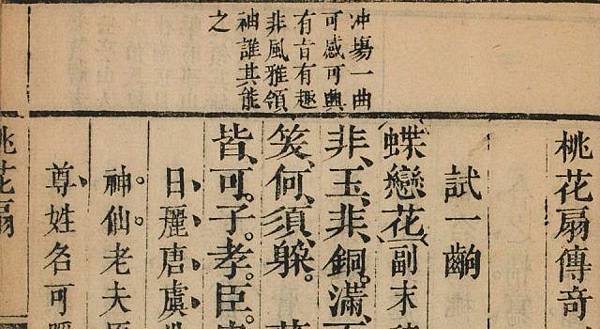 冲塲一曲
可感可興
有旨有趣
非風雅領
袖誰其能
之
桃花扇傳奇
試一齣
蝶戀花副末
非、玉、非、銅。滿、
笑、何、須、躱。
皆、可。子。孝。臣。
日、麗。唐、虞、
神。仙。老夫
尊、姓名可
桃花扇